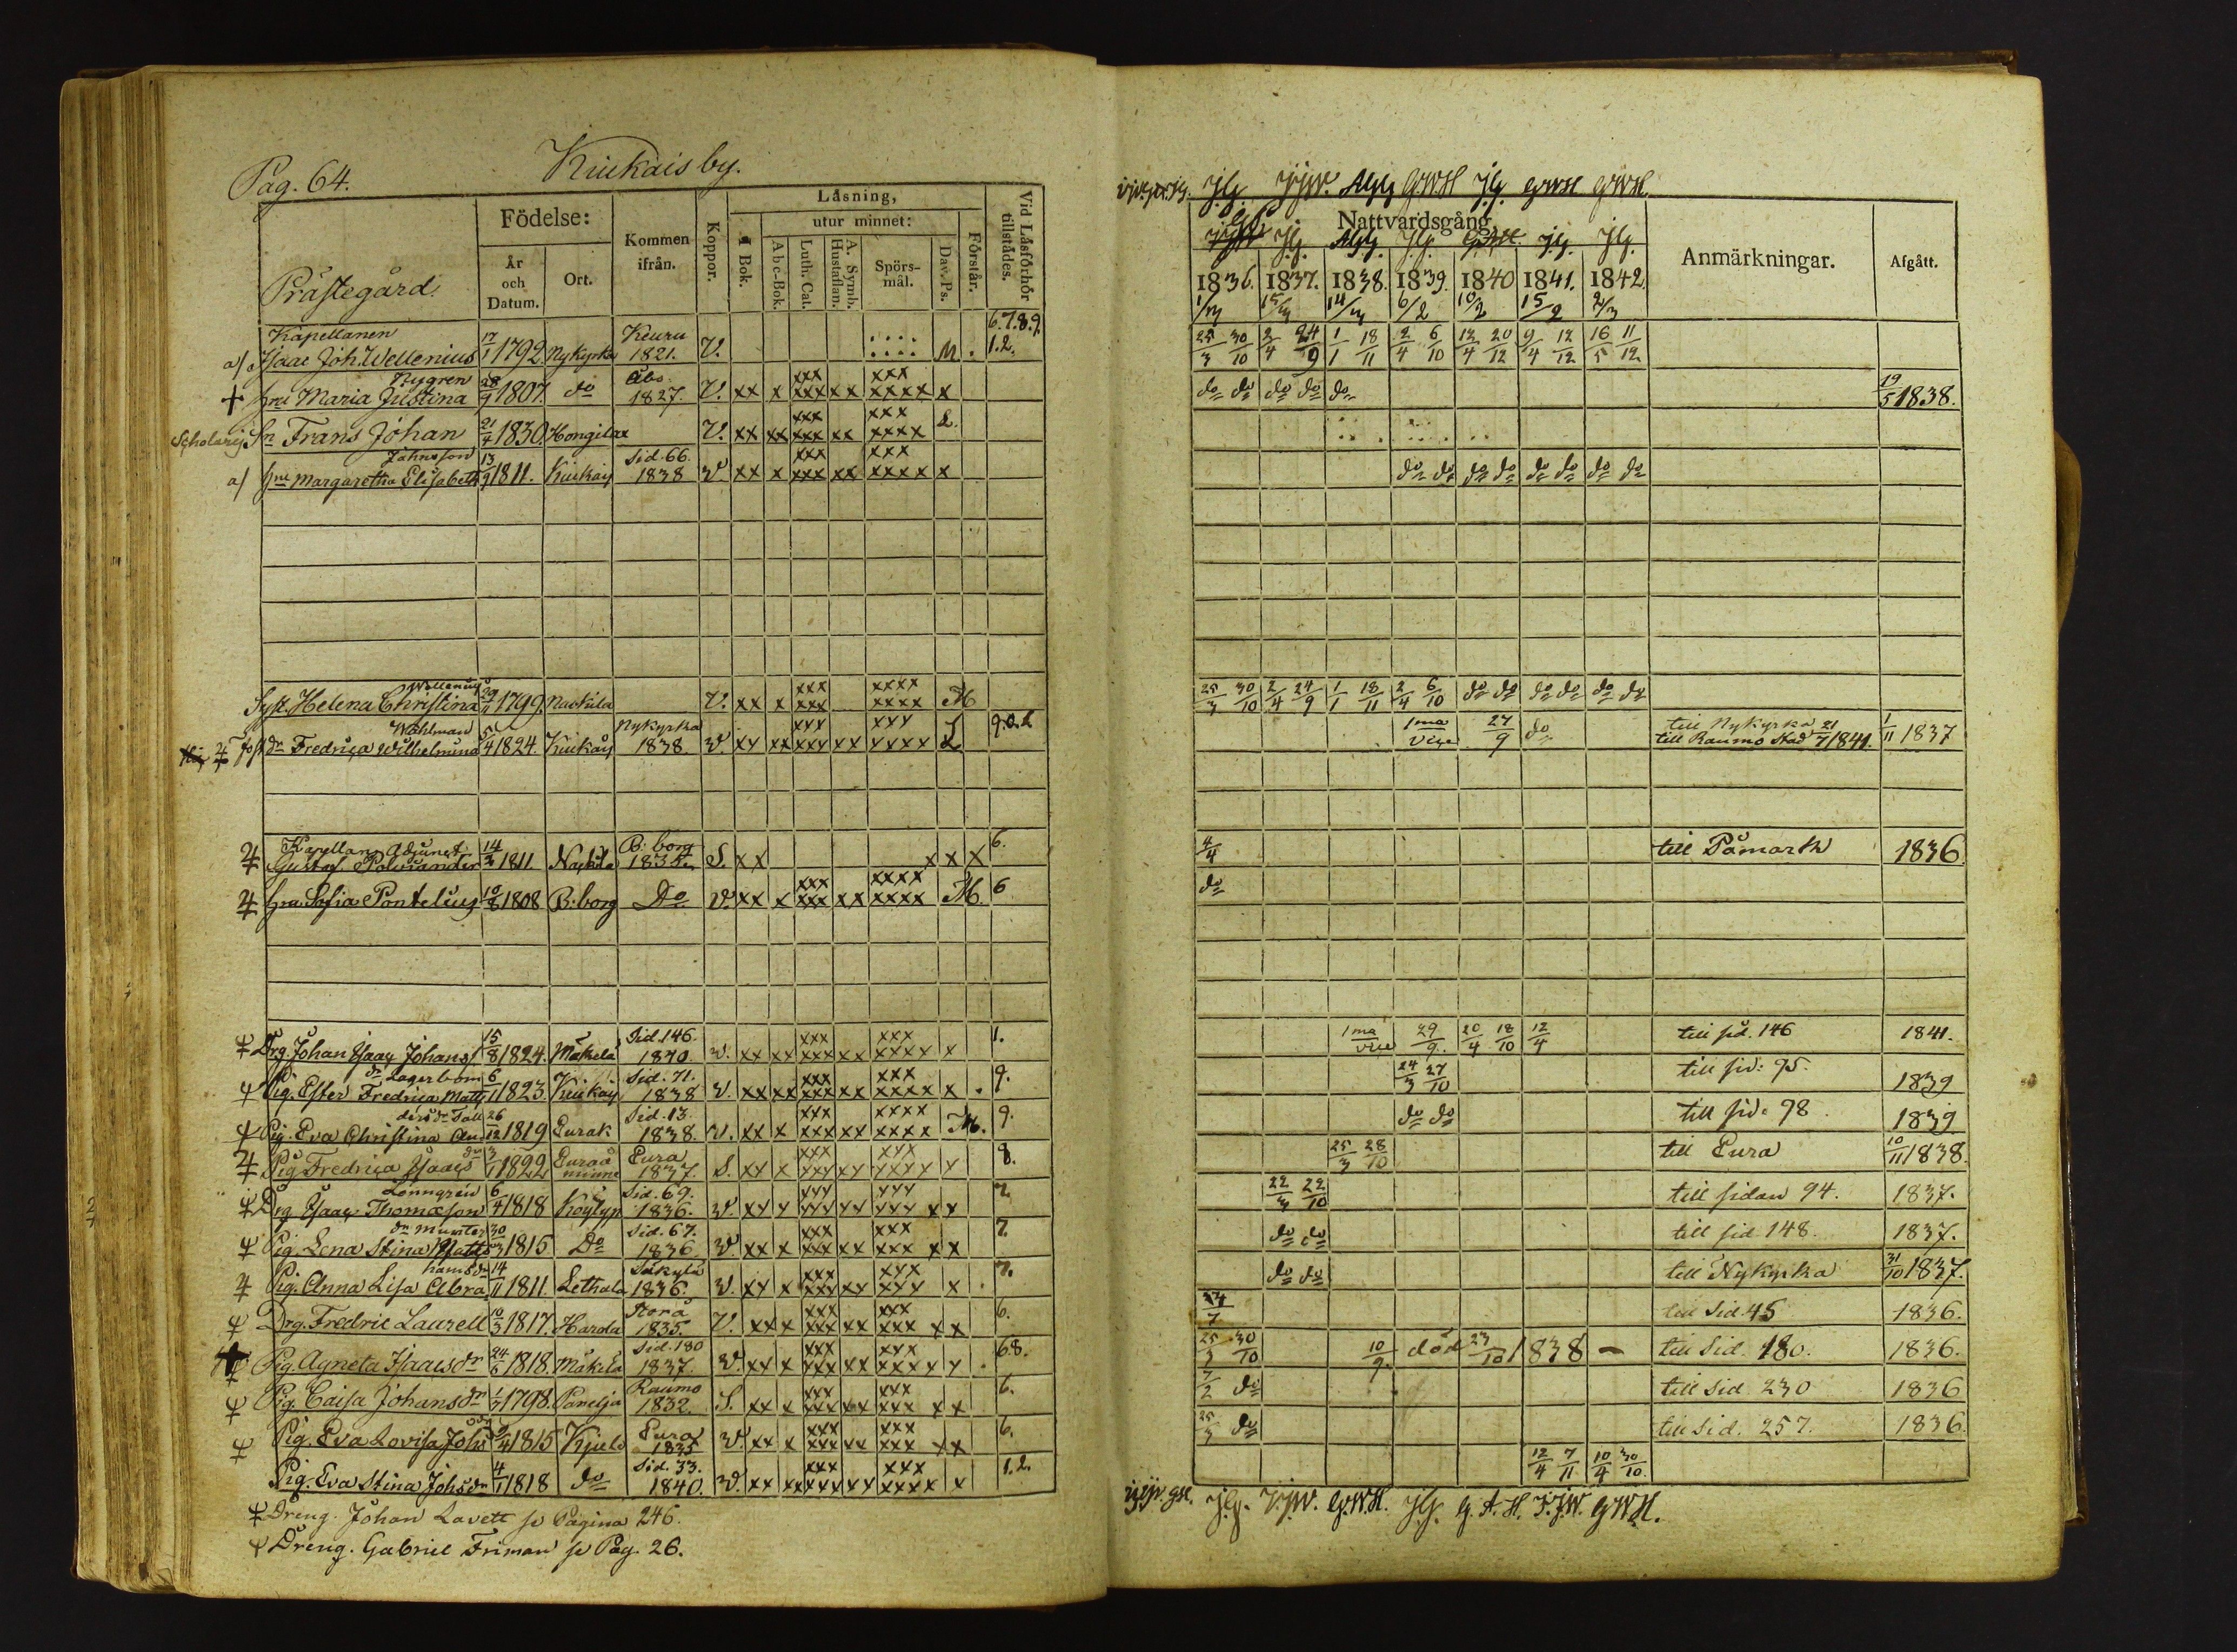 Pag. 64.
Kiukais by.
Prästegård.
Födelse:
År och Datum.
Ort.
Kommen ifrån.
Koppor.
Läsning,
i Bok.
utur minnet:
Abc-Bok.
Luth. Cat.
A. Symb. Hustaflan.
Spörs-mål.
Dav. Ps.
Förstår.
Vid Läsförhör tillstädes.
Nattvardsgång
Anmärkningar.
Afgått.
1836. 1837. 1838. 1839. 1840 1841. 1842.
Kapellanen
a) Isaac Joh. Wellenius 17/1 1792 Nykyrka Keuru 1821. V. M . 6.7.8.9. 1.2. 25/3 30/10 2/4 24/9 1/1 18/11 2/4 6/10 12/4 20/12 9/4 12/12 16/5 11/12
Nygren
+ hru Maria Justina 28/9 1807. do Åbo 1827. V. xx x xxx xxx xx xxx xxxx x do do do do do 19/5 1838.
Scholaris Sn Frans Johan 21/4 1830. Hongilax V. xx xx xxx xxx xx xxx xxxx 2.
Johnsson
a) hru Margaretha Elisabeth 13/9 1811. Kiukais Sid. 66 1838 V. xx x xxx xxx xx xxx xxxx x do do do do do do do do
Wellenius
Syst. Helena Christina 29/11 1799. Nackila V. xx x xxx xxx xxxx xxxx M 25/3 30/10 2/4 24/9 1/1 18/11 2/4 6/10 do do do do do do
Wahlman
dr Fredrica Wilhelmina 5/4 1824. Kiukais Nykyrka 1838. V. xx xx xxx xxx xx xxx xxxx 9.0.1 1ma vice 27/9 do till Nykyrka till Raumo stad 21/7 1841. 1/11 1837
Kapellans Adjunct
Gustaf Polviander 14/3 1811 Nackila B:borg 1835 S. xx x x x 6. 4/4 till Påmark 1836.
hru Sofia Pontelius 10/8 1808 B:borg Do V. xx x xxx xxx xx xxxx xxxx M. 6 do
Drg. Johan Isaac Johans 15/8 1824. Mäkelä Sid. 146. 1840. V. xx xx xxx xxx xx xxx xxxx x 1. 1ma vice 29/9. 20/4 18/10 12/4 till sid. 146 1841.
dr Lagerbom
Pig. Ester Fredrica Matts 6/1 1823. Kiukais Sid. 71. 1838 V. xx xx xxx xxx xx xxx xxxx x . 9. 24/3 27/10 till sid: 95. 1839
dersdr Tall
Pig. Eva Christina An 26/12 1819 Eurak Sid. 13. 1838. V. xx x xxx xxx xx xxxx xxxx M. 9. do do till sid. 98. 1839
Pig. Fredrica Isaacs dr 3/1 1822 Euraåminne Eura 1837. S. xx x xxx xxx xx xxx xxxx x 8. 25/3 28/10 till Eura 10/11 1838.
Lönngren
Drg. Isaac Thomæson 6/4 1818 Köylyp Sid. 69. 1836. V. xx x xxx xxx xx xxx xxx x x 7. 22/3 22/10 till sidan 94. 1837.
dr Munter
Pig. Lena Stina Matts 30/3 1815 Do Sid. 67. 1836. V. xx x xxx xxx xx xxx xxx x x 7. do do till sid 148. 1837.
hamsdr
Pig. Anna Lisa Abra 14/11 1811. Lethala Säkylä 1836. V. xx x xxx xxx xx xxx xxx x . 7. do do till Nykyrka 31/10 1837.
Drg. Fredric Laurell 10/3 1817. Harola Storå 1835. V. xx x xxx xxx xx xxx xxx x x 6. till Sid. 45 1836.
Pig. Agneta Isaacsdr 24/6 1818. Mäkilä Sid. 180 1837. V. xx x xxx xxx xx xxx xxxx x . 68. 25/3 30/10 10/9. död 23/10 1838 - till Sid. 180. 1836.
Pig. Caisa Johansdr 1/3 1798. Panelja Raumo 1832. S. xx x xxx xxx xx xxx xxx x x 6. 7/2 do till Sid 230 1836
Pig. Eva Lovisa Johs dr 1815 Kjulo Eura 1835 V. xx x xxx xxx xx xxx xxx x x 6. 25/3 do till Sid. 257. 1836.
Pig. Eva Stina Johsdr 4/1 1818 do Sid. 33. 1840. V. xx xx xxx xxx xx xxx xxxx x 1.2. 12/4 7/11 10/4 30/10.
Dreng. Johan Lavett se Pagina 246.
Dreng. Gabriel Friman se Pag. 26.